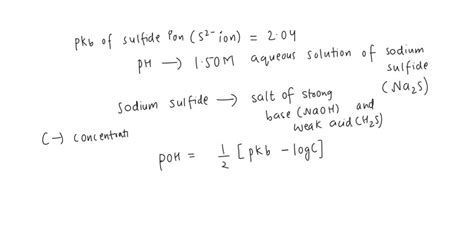 pkb of sulfide ion (S²⁻ ion) = 2.04
pH → 1.50M aqueous solution of sodium
sulfide
(Na₂S)
sodium sulfide → salt of strong
base (NaOH) and
weak acid (H₂S)
C → concentrati
pOH = 1/2 [pkb - logC]